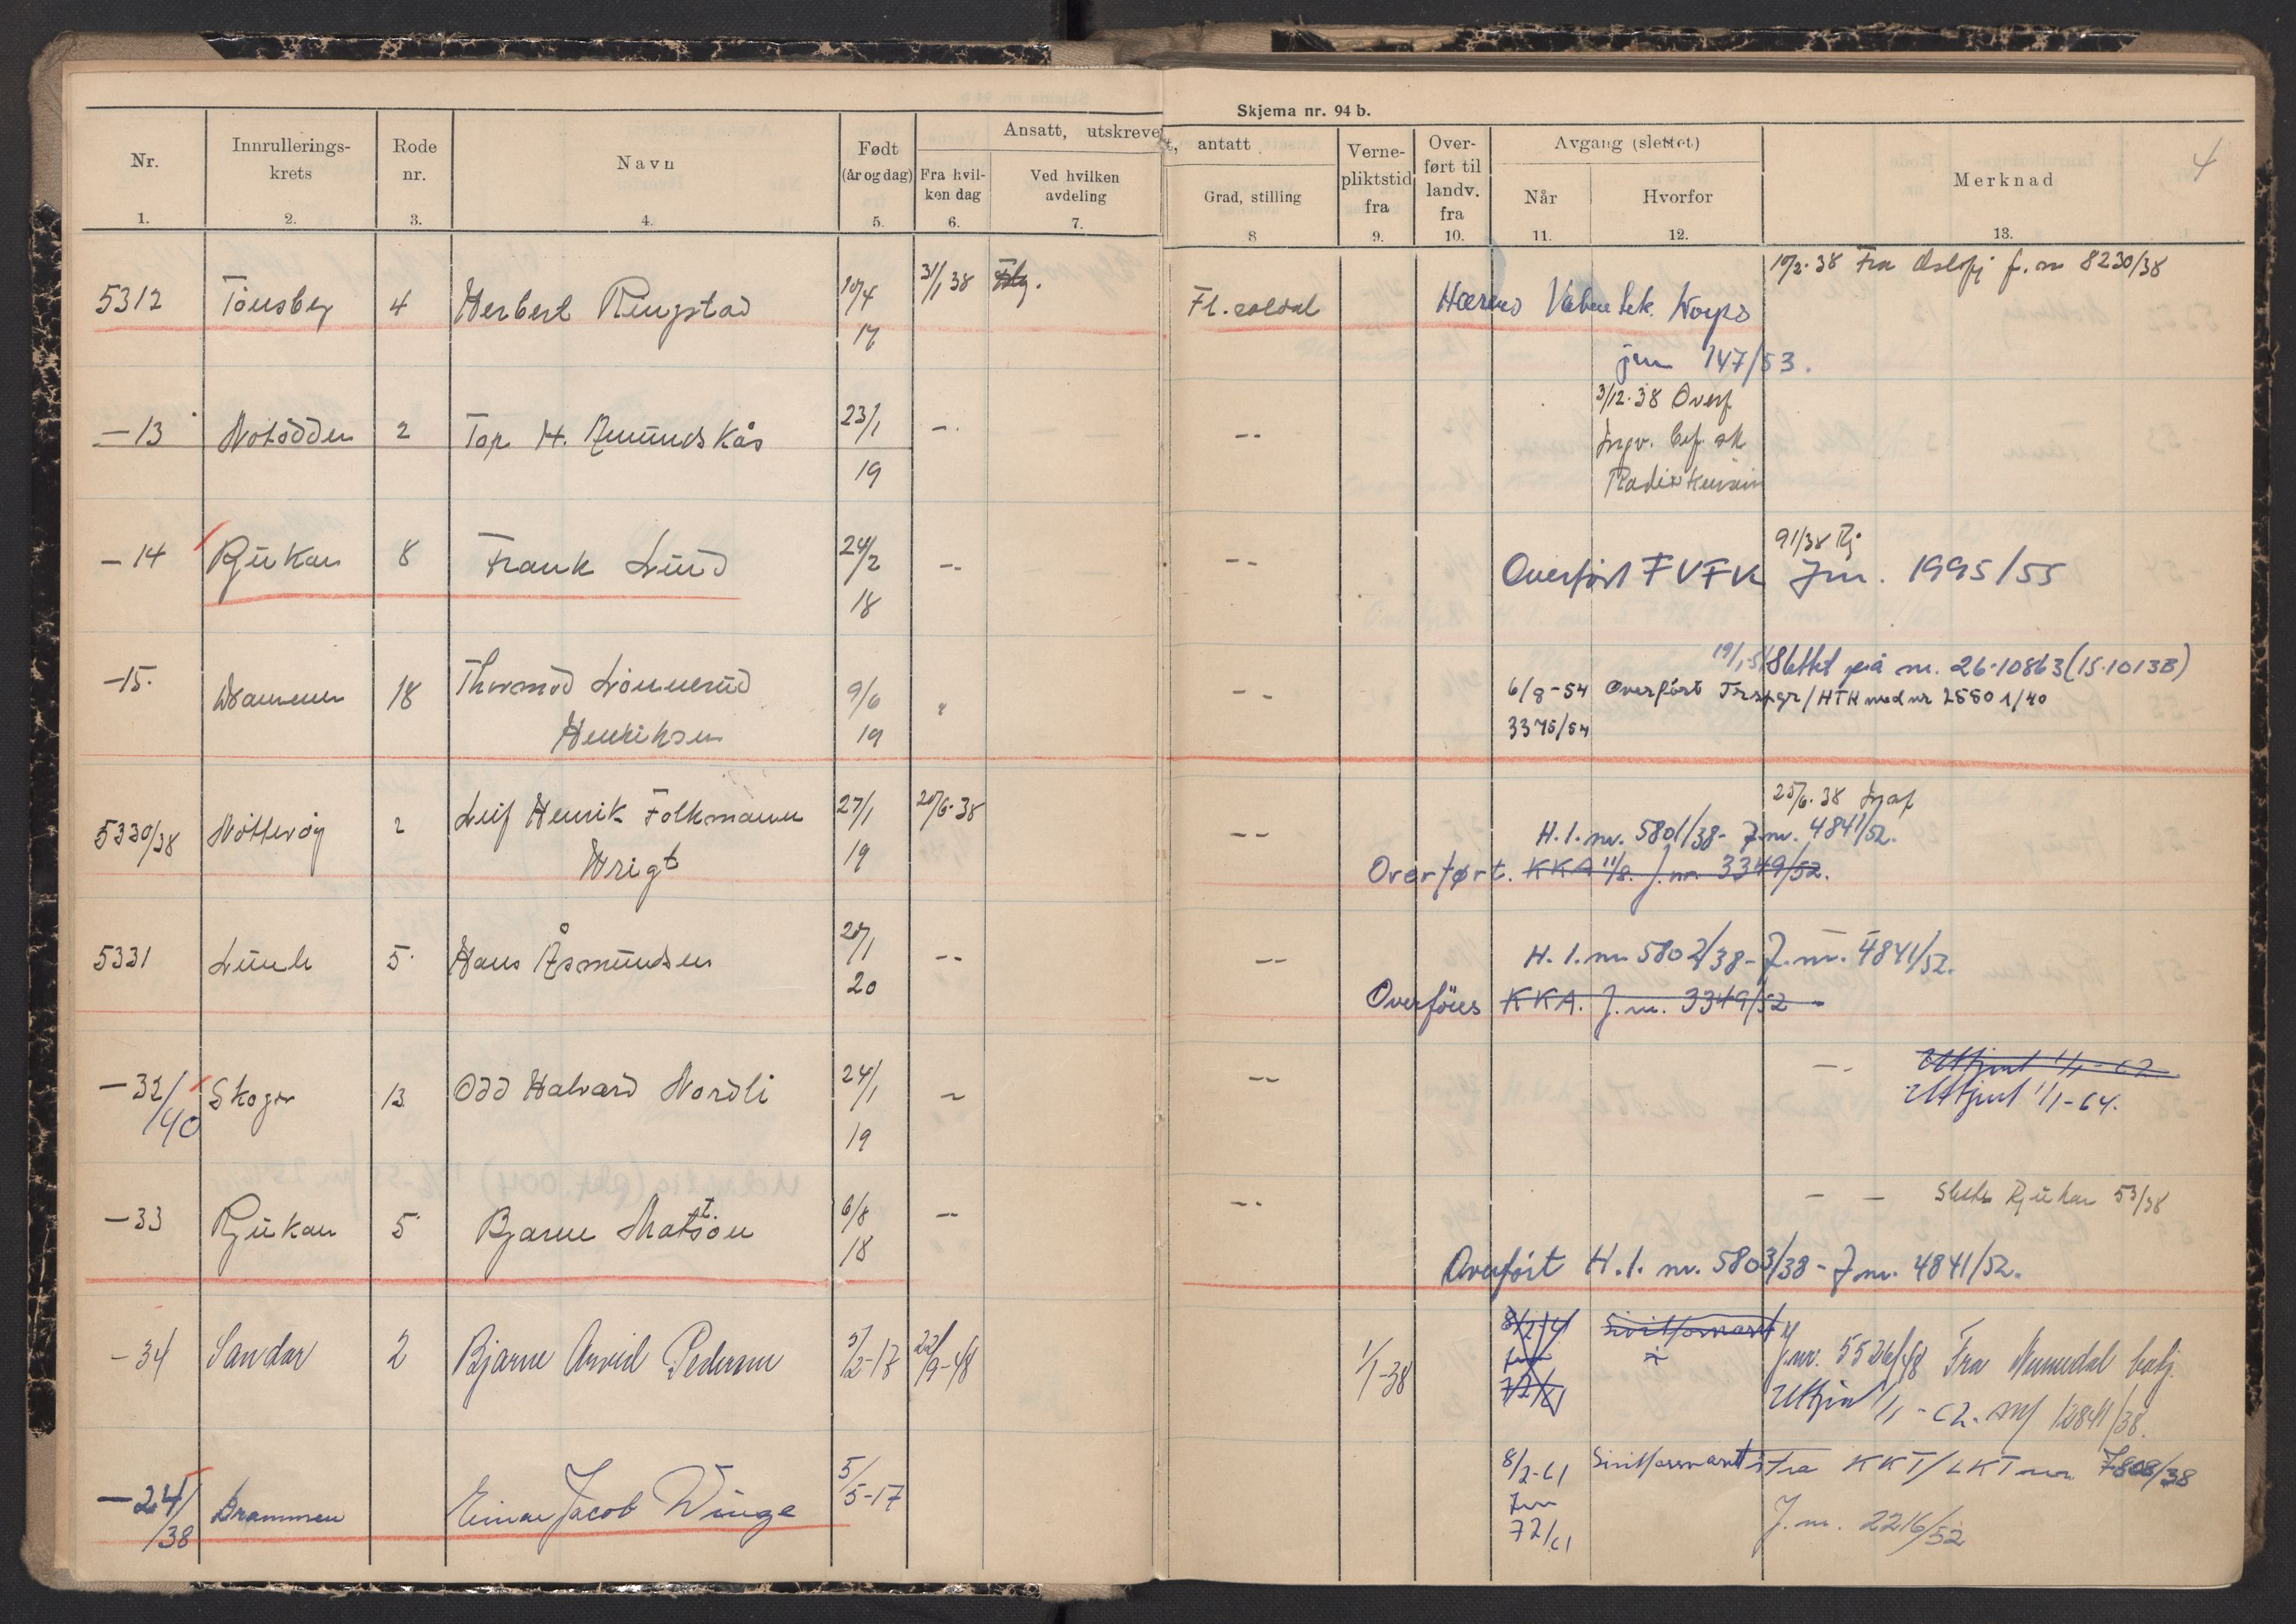 Skjema nr. 94 b.
4
Nr. Innrullerings-krets Rode nr. Navn Født (år og dag) Ansatt, utskrevet, antatt Fra hvilken dag Ved hvilken avdeling Grad, stilling Vernepliktstid fra Overført til landv. fra Avgang (slettet) Når Hvorfor Merknad
1. 2. 3. 4. 5. 6. 7. 8 9. 10. 11. 12. 13.
10/2-38 Fra Oslofj j.nr 8230/38
5312 Tönsberg 4 Herbert Ringstad 10/4 17 31/1 38 Fl. soldat Hærens Korps
jnr 147/53.
3/12-38 Overf
-13 Notodden 2 Tor H. Amundskås 23/1 19 -- --
91/38 Rj
-14 Rjukan 8 Frank Lund 24/2 18 -- -- Overført FVFK Jnr. 1995/55
19/1-51 Slettet på nr. 26-10863 (15.1013B)
-15. Drammen 18 Thormod Lönnerud Henriksen 9/6 19 " -- 6/8-54 Overført HTK med nr 25801/40
3375/54
25/6-38
5330/38 Nötteröy 2 Leif Henrik Folkmann Wrigt 27/1 19 20/6-38 -- H.I. nr. 5801/38 - J.nr. 4841/52.
Overført. KKA 11/8. J.nr. 3349/52.
5331 Lunde 5 Hans Åsmundsen 20/1 20 -- -- H.I. nr 5802/38 - J.nr. 4841/52.
Overføres KKA. J.nr. 3349/52
-32/40 Skoger 13 Odd Halvard Nordli 24/1 19 -- -- Uttjent 1/1-62
Uttjent 1/1-64.
-33 Rjukan 5 Bjarne Matsson 6/8 18 -- -- -- Slettes Rjukan 53/38
Overført H.I. nr. 5803/38 - J.nr. 4841/52.
8/2-61 Sivilforsvaret
-34 Sandar 2 Bjarne Arvid Pedersen 5/2-17 22/9-48 1/1-38 Jnr 72/61 J.nr. 5526/48 Fra Numedal batj.
Uttjent 1/1-62. 12841/38.
-24/38 Drammen Einar Jacob Winge 5/5-17 8/2-61 Sivilforsvaret Fra KKT/LKT nr 7808/38
Jnr 72/61 J.nr. 2216/52